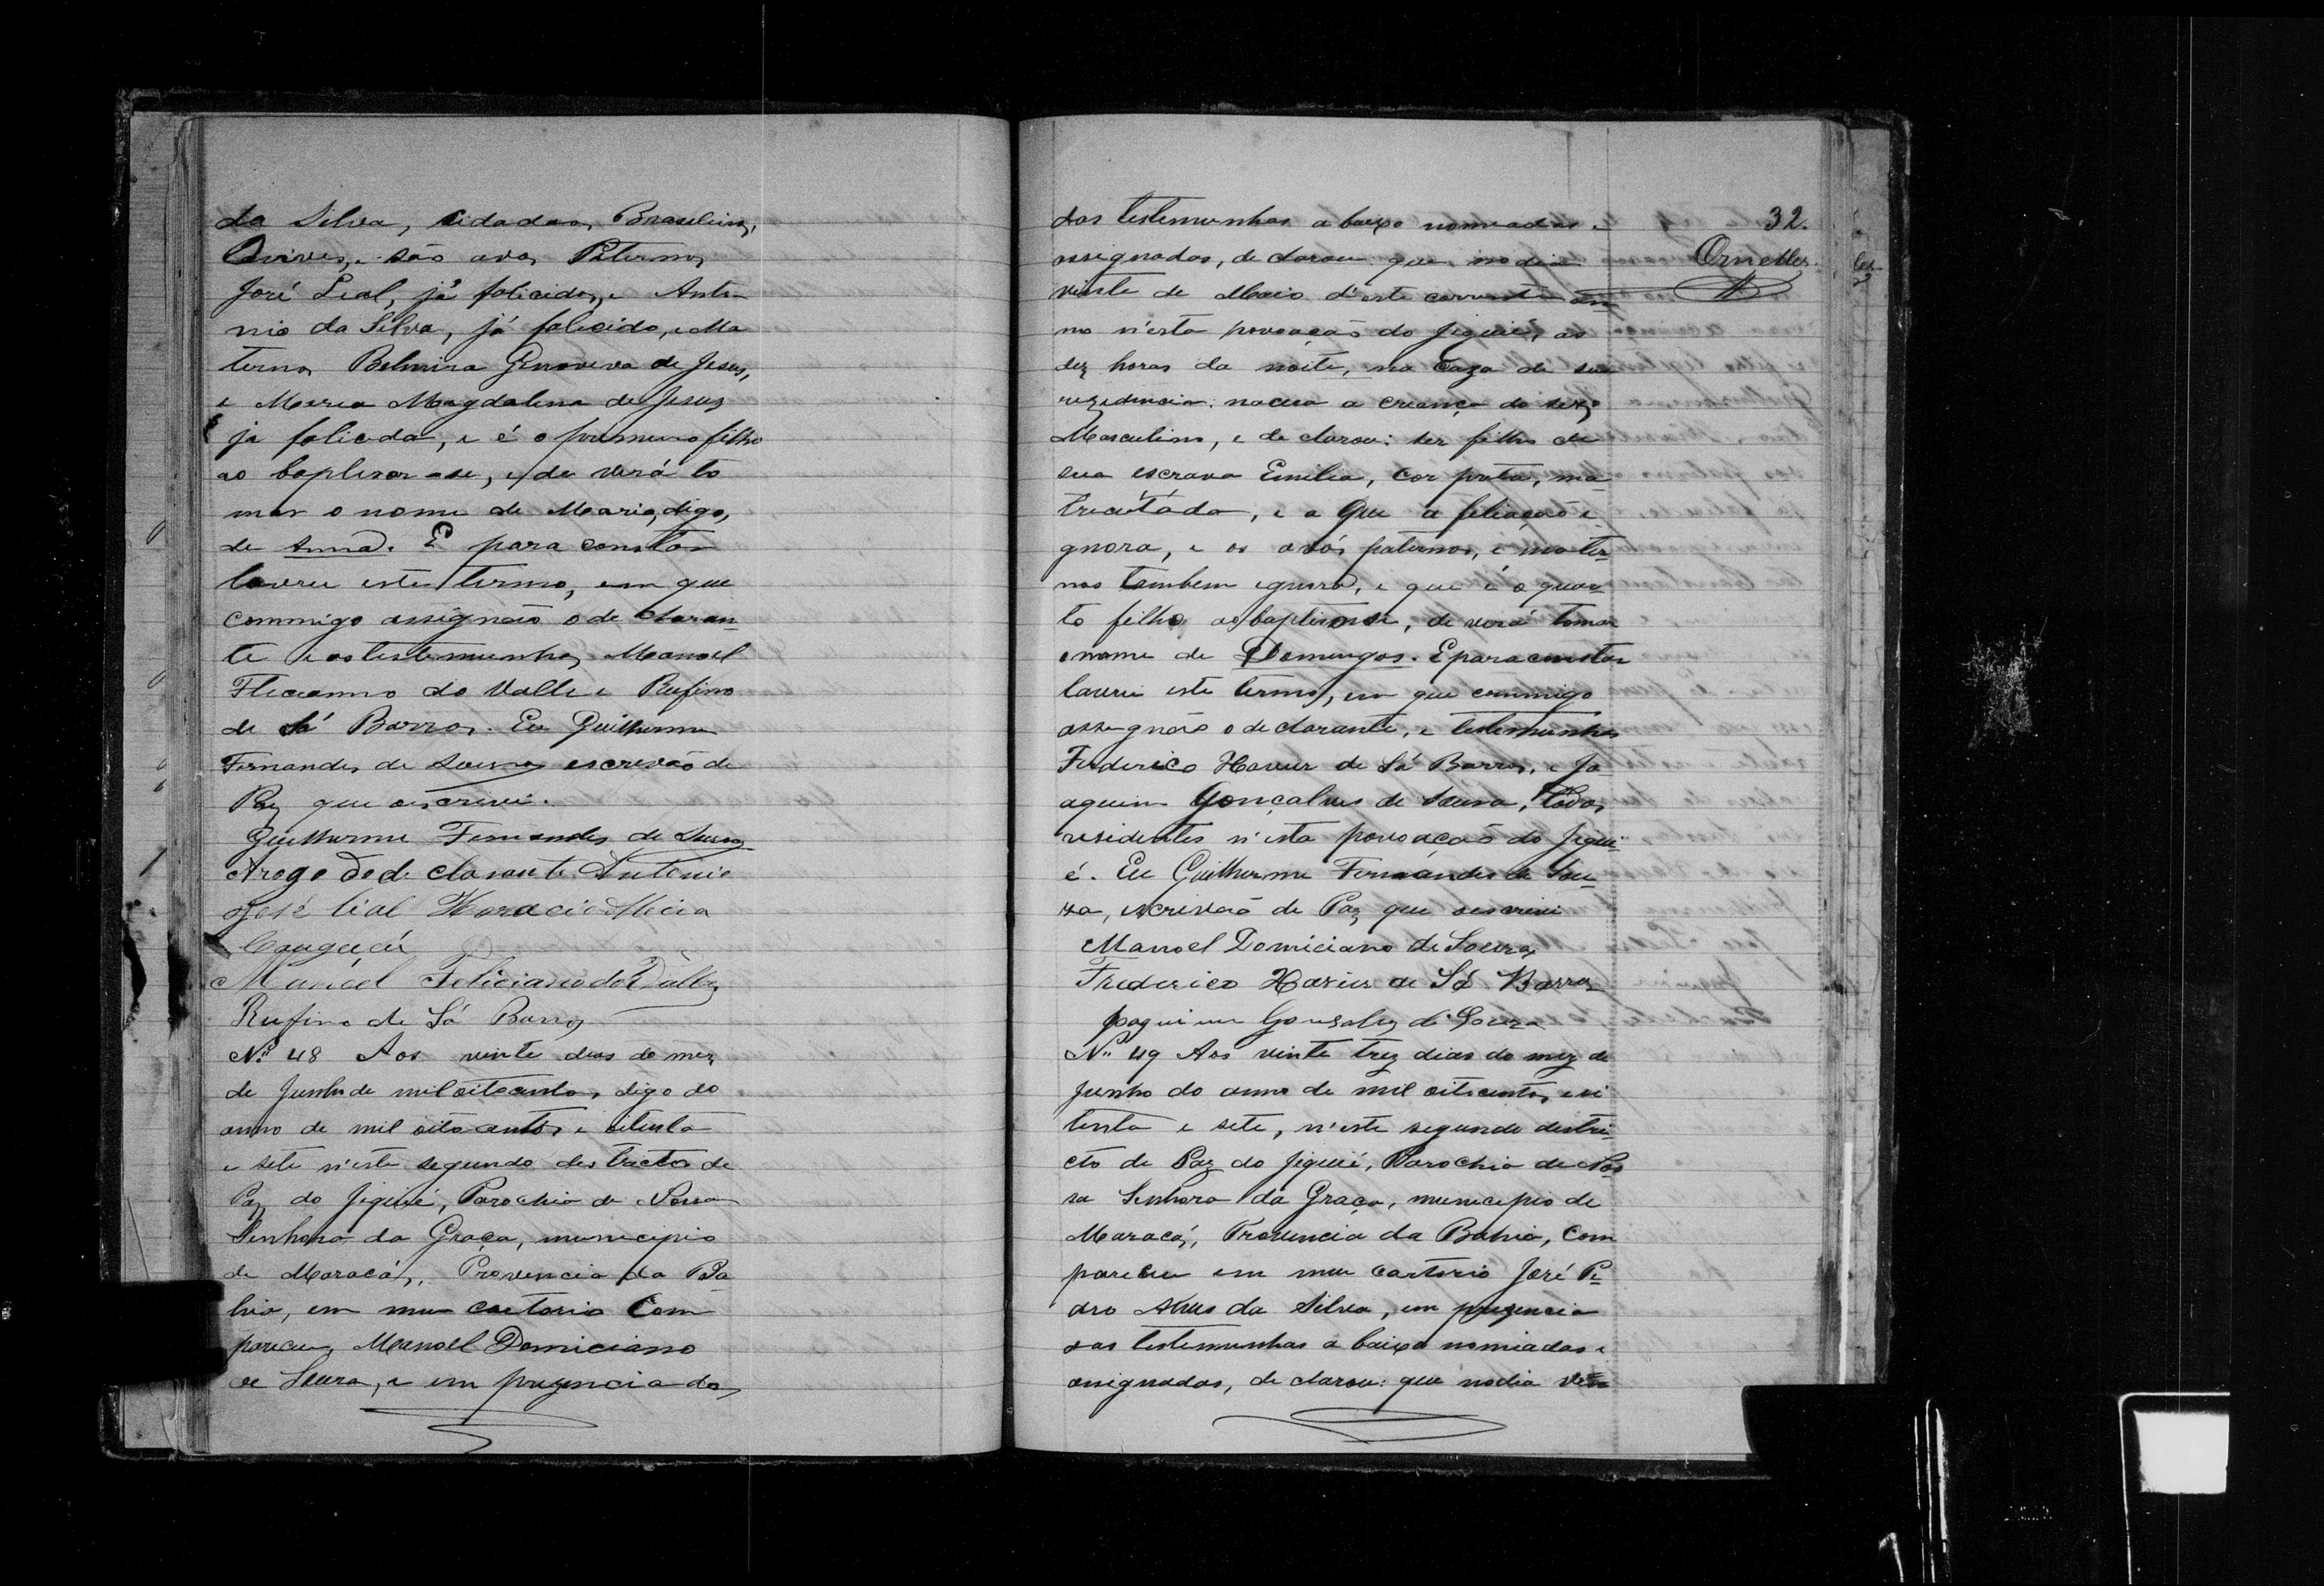 da Silva, cidadaos, Brasileiros,
Ourives, são avos Paternos
José Leal, já falicidos, e Anto
nio da Silva, já falicido, e Ma
ternos Belmira Genoveva de Jesus,
e Maria Magdalena de Jesus
já falicida, e é o primeiro filho
ao baptisar-se, e de verá to
mar o nome de Maria, digo,
de Anna. E para constar
lavrei este termo, em que
commigo assignão o de claran
te e as testemunhas Manoel
Fliciano do Valle e Rufino
de Sá Barros. Eu Guilherme
Fernandes de Souza escrivão de
Paz que oiscrivi.
Guilherme Fernandes de Souza
Arogo do de clarante Antonio
José lial Horacio Mecia
Manoel Feliciano do Valle
Rufino de Sá Barros
Nº 48 Aos vinte dias do mez
de Junho de mil oitocentos, digo do
anno de mil oito centos e oitenta
e sete n'este segundo destricto de
Paz do Jiquié, Parochia de Nossa
Senhora da Graça, municipio
de Maracás, Provencia da Ba
hia, em meu cartorio Com
pareceu, Manoel Domiciano
de Souza, e em prezencia das
32.
Ornellas
das testemunhas a baixo nomeadas e
assignadas, de clarou: que no dia
vinte de Maio d'este corrente an
no n'esta povoação do Jiquié, as
dez horas da noite, na Caza de sua
rezidencia. naceu a creança do sexo
Masculino, e de clarou: ser filho de
sua escrava Emilia, Cor preta, ma
triculada, e a que a filiação i
gnora, e os avós paternos, e mater
nos tambem ignora, e que é o quar
to filho ao baptisarse, de verá tomar
o nome de Domingos. E para constar
lavrei este termo, em que commigo
assignão o de clarante, e testemunhas
Frederico Xavier de Sá Barros, e Jo
aquim Gonçalves de Souza, todos
residentes n'esta povoação do Jiqui
é. Eu Guilherme Fernandes de Sou
za, escrivão de Paz que oescrivi
Manoel Domiciano de Souza
Frederico Xavier de Sá Barros
Joaquim Gonsalves de Souza
Nº 49 Aos vinte trez dias do mez de
Junho do anno de mil oitocentos e oi
tenta e sete, n'este segundo destri
cto de Paz do Jiquié, Parochia de Nos
sa Senhora da Graça, municipio de
Maracás, Provencia da Bahia, Com
pareceu em meu cartorio José Pe
dro Alves da Silva, em prezencia
das testemunhas a baixo nomiadas e
assignadas, de clarou: que no dia vin